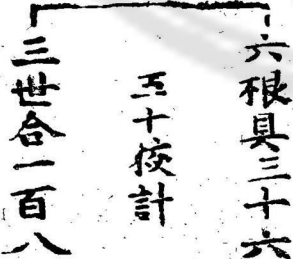 六根具三十六
五十挍計
三世合一百八